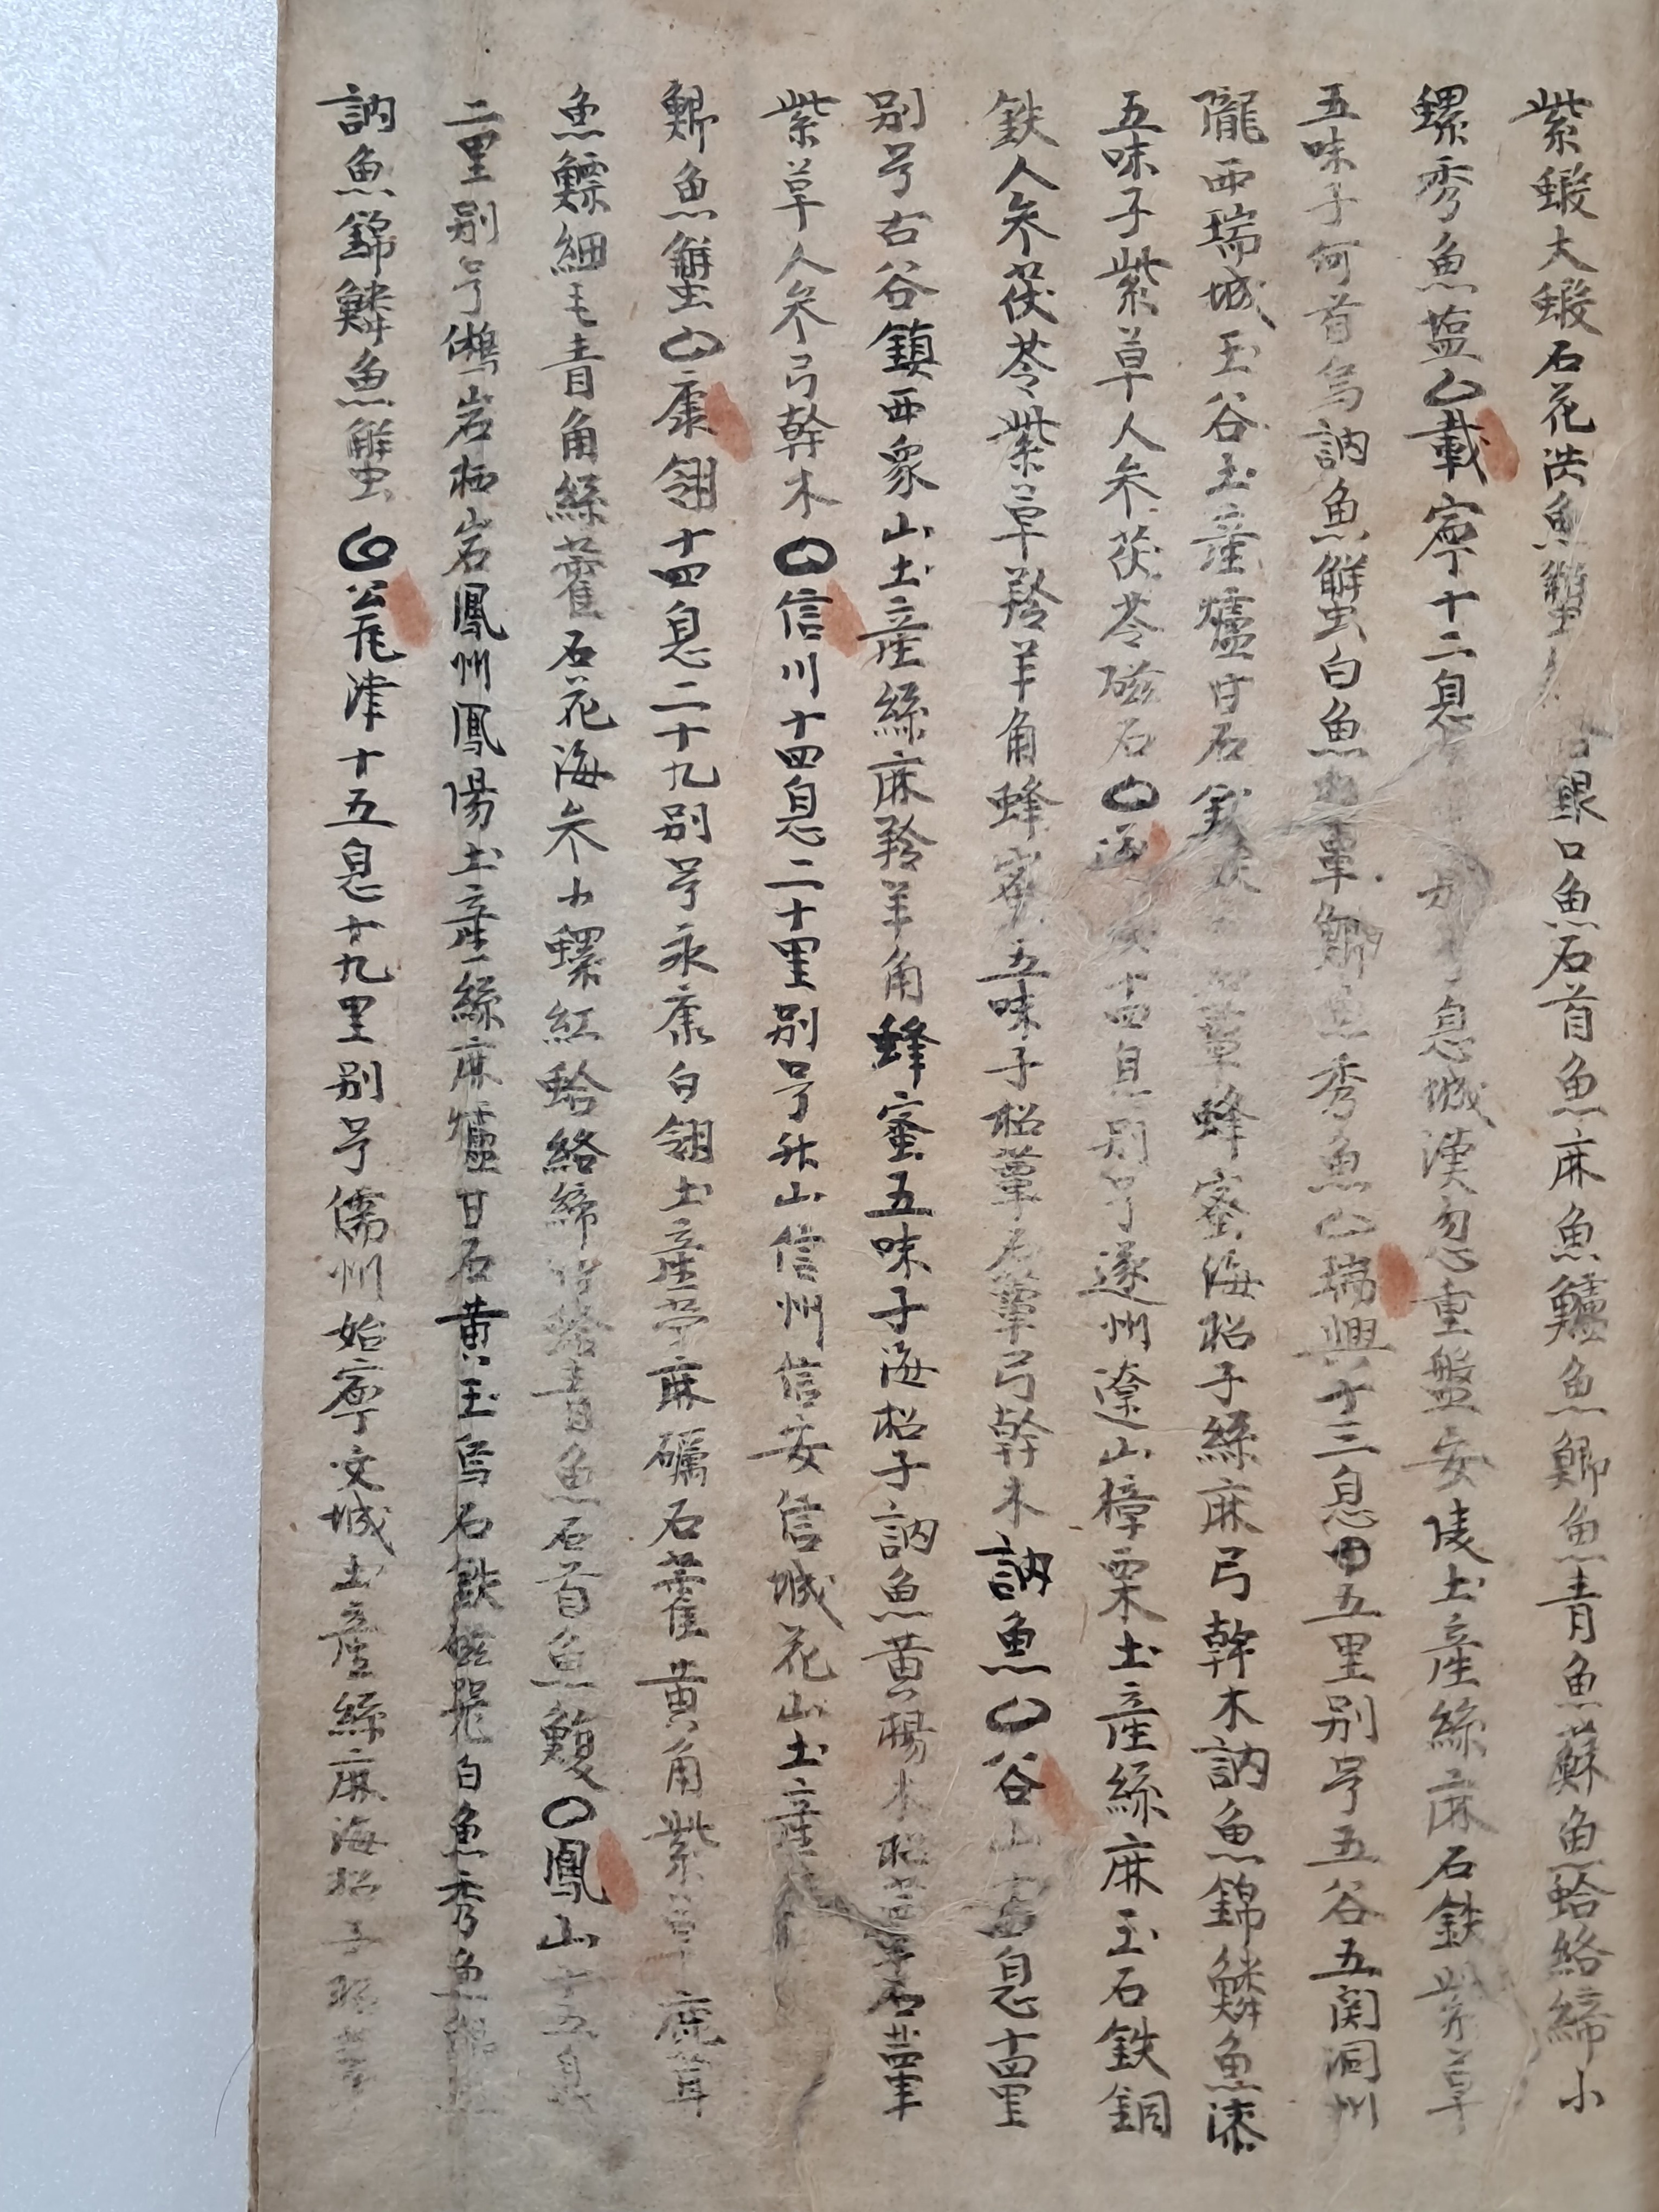 紫蝦大蝦石花洪魚蟹 蛤銀口魚石首魚麻魚鱸魚鯽魚青魚蘇魚蛤絡締小
螺秀魚塩〇載寧十二息 別号息城漢忽重盤安陵土産絲麻石鉄紫草
五味子何首烏訥魚蟹白魚 蕈鯽魚秀魚〇瑞興十三息田五里別号五谷五関洞州
隴西瑞城玉谷土産爐甘石鉄 蕈蜂蜜海松子絲麻弓幹木訥魚錦鱗魚漆
五味子紫草人参茯苓磁石〇遂 十四息別号遂州遼山樟栗土産絲麻玉石鉄銅
鉄人参茯苓紫草羚羊角蜂蜜五味子松蕈石蕈弓幹木訥魚〇谷山 息十四里
別号古谷鎮西象山土産絲麻羚羊角蜂蜜五味子海松子訥魚黄楊木松蕈石蕈
紫草人参弓幹木〇信川十四息二十里別号升山信州信安信城花山土産
鯽魚蟹〇康翎十四息二十九別号永康白翎土産苧麻礪石藿黄角紫草鹿茸
魚鰾細毛青角絲藿石花海参小螺紅蛤絡締 蛤青魚石首魚鰒〇鳳山十五息
二里別号鵂岩栖岩鳳州鳳陽土産絲麻爐甘石黄玉烏石鉄磁器白魚秀魚
訥魚錦鱗魚蟹〇瓮津十五息十九里別号儒州始寧文城土産絲麻海松子松蕈